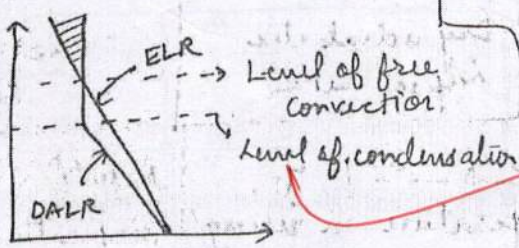 ELR
Level of free
convection
Level of condensation
DALR